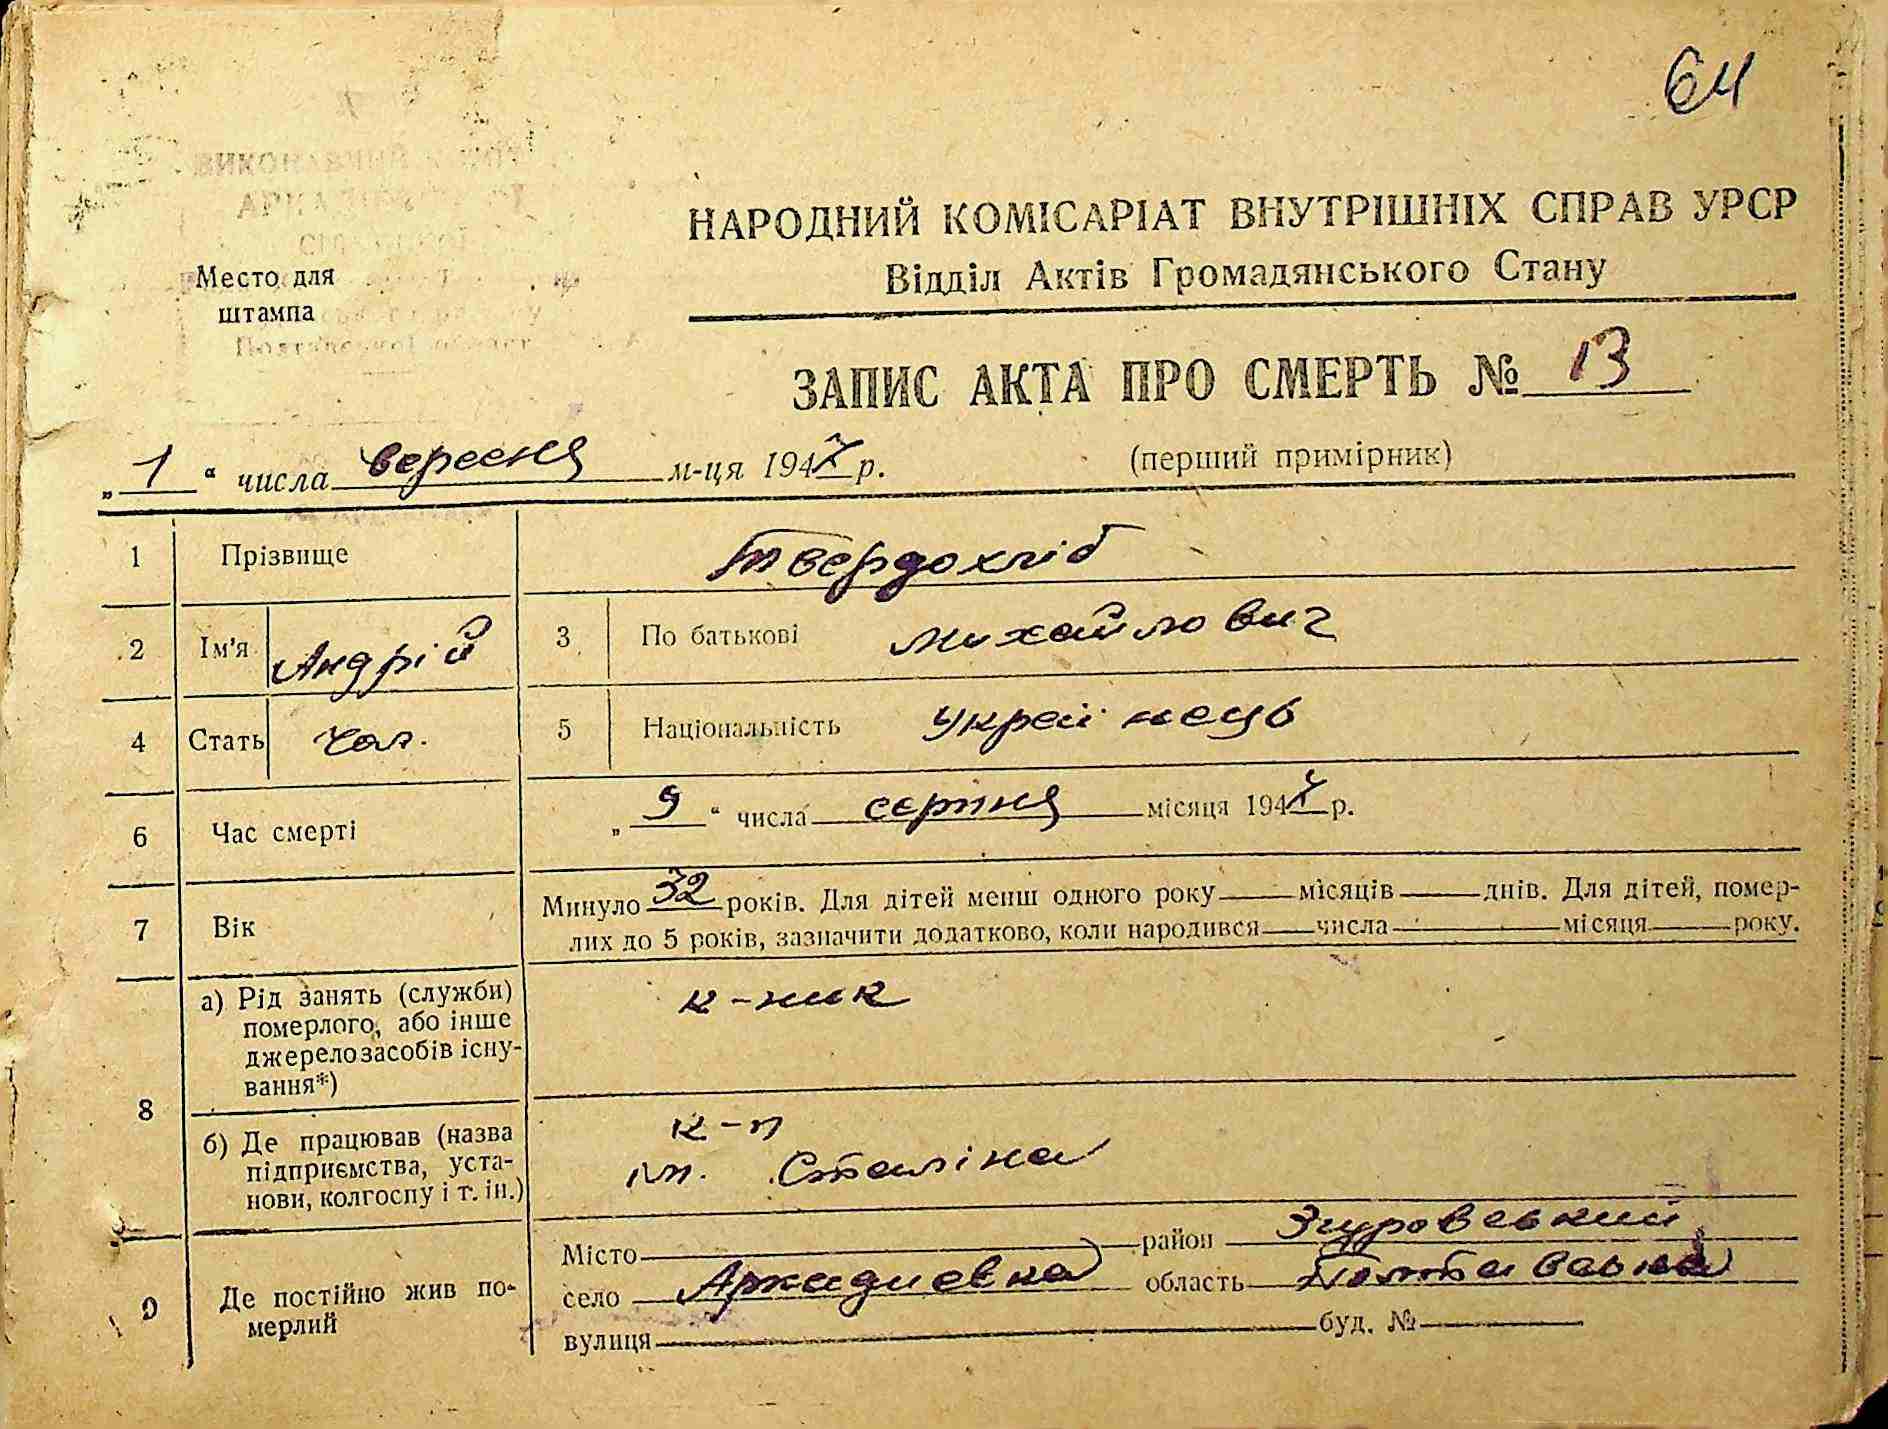 64
НАРОДНИЙ КОМІСАРІАТ ВНУТРІШНІХ СПРАВ УРСР
Відділ Актів Громадянського Стану
Место для
штампа
Полтавської області
ЗАПИС АКТА ПРО СМЕРТЬ № 13
„1“ числа вересня м-ця 1947 р.
(перший примірник)
1 Прізвище Твердохліб
2 Ім'я Андрій 3 По батькові Михайлович
4 Стать чол. 5 Національність Українець
6 Час смерті „9“ числа серпня місяця 1947 р.
7 Вік Минуло 32 років. Для дітей менш одного року — місяців — днів. Для дітей, помер-
лих до 5 років, зазначити додатково, коли народився — числа — місяця — року.
8 а) Рід занять (служби)
померлого, або інше
джерело засобів існу-
вання*)
к-ник
б) Де працював (назва
підприємства, уста-
нови, колгоспу і т. ін.)
к-п
ім. Сталіна
9 Де постійно жив по-
мерлий
Місто — район Згуровський
село Аркадиевка область Полтавська
вулиця — буд. № —